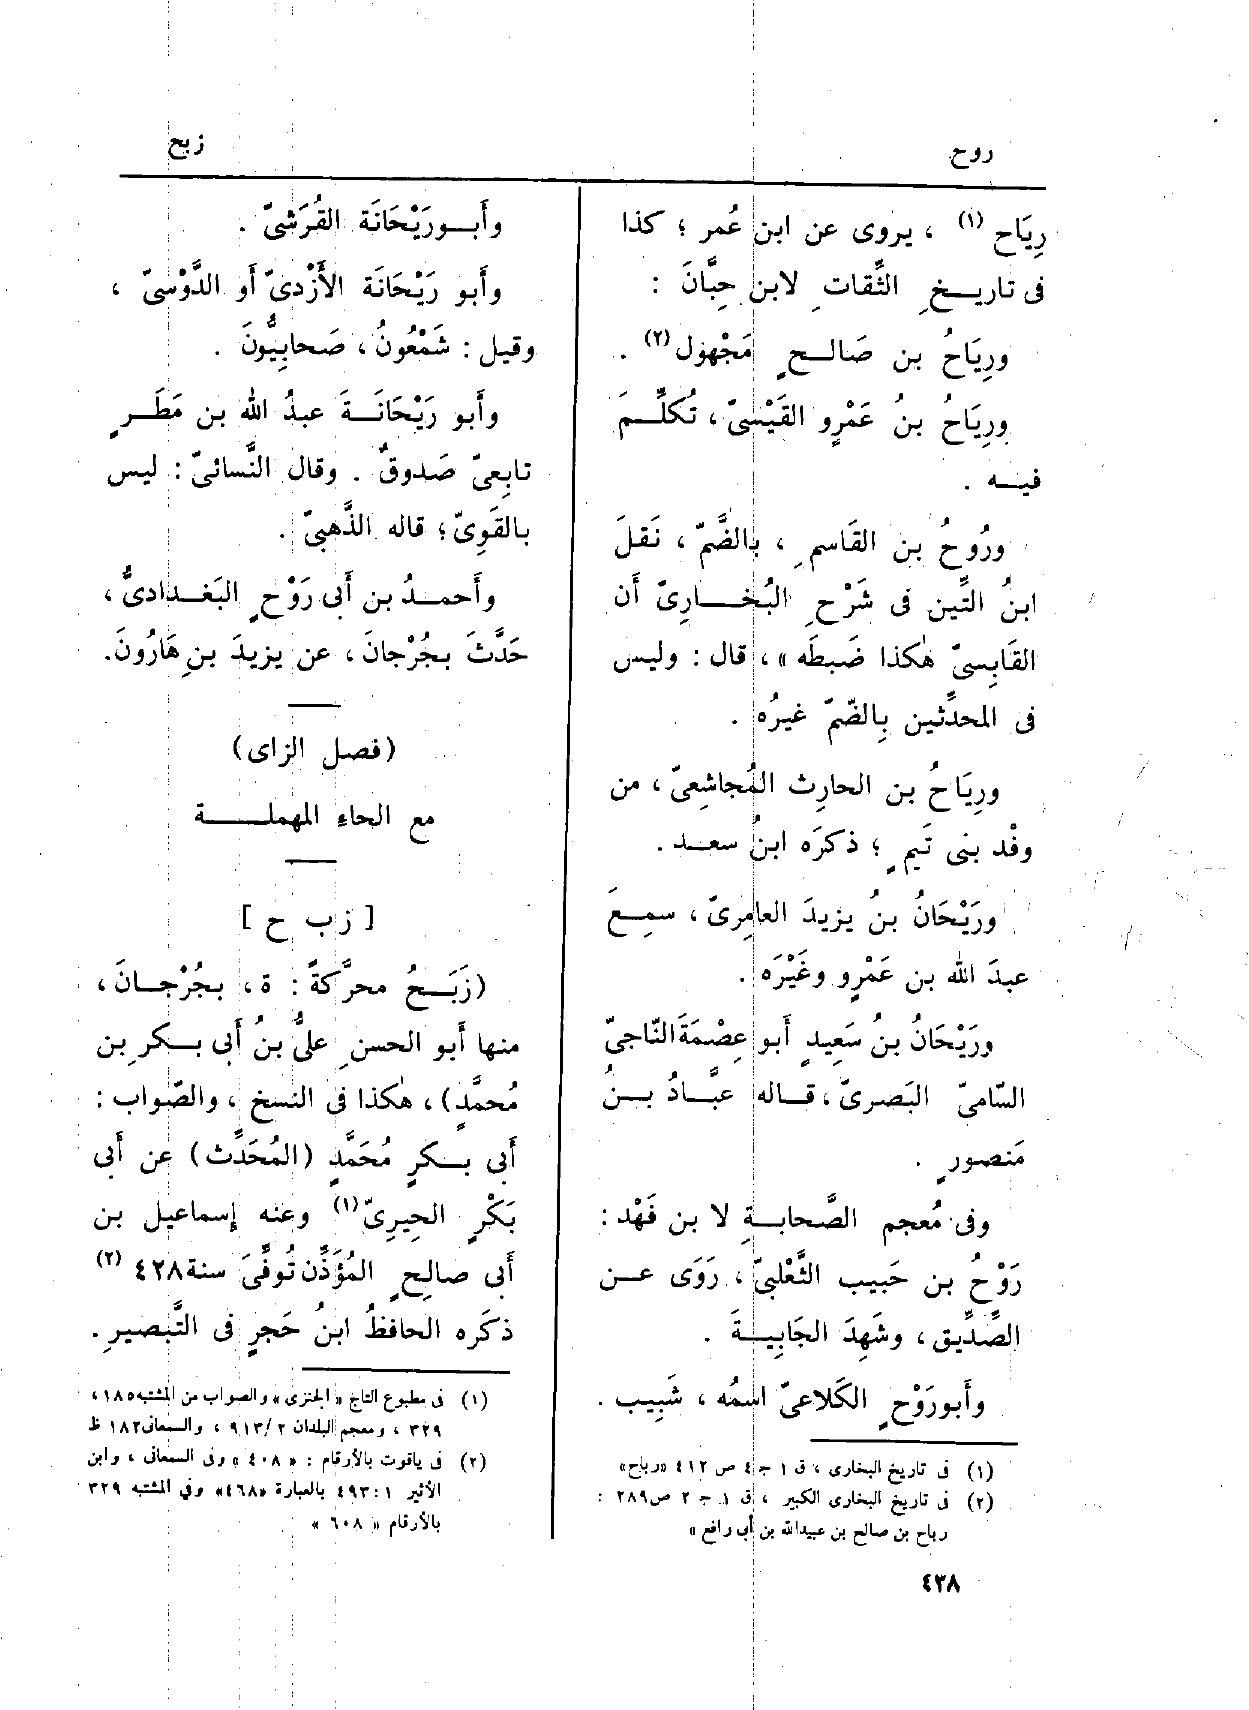 روح
زبح
رِيَاح (١) ، يروى عن ابن عُمر ؛ كذا
فى تاريـخِ الثِّقاتِ لابن حِبَّانَ :
ورِيَاحُ بن صَالـحٍ مَجْهول(٢) .
ورِيَاحُ بنُ عَمْرٍو القَيْسىّ ، تُكلِّـمَ
فيـه .
ورُوحُ بن القَاسمِ ، بالضَّمّ ، نَقلَ
ابنُ التِّين فى شَرْحِ البُخـارِىّ أن
القَابِسىّ هٰكذا ضَبطَه » ، قال : وليس
فى المحدِّثين بِالضّمّ غيرُه .
ورِيَاحُ بن الحارِث المُجاشعىّ ، من
وفْد بنى تَيمٍ ؛ ذكرَه ابنُ سعـد .
ورَيْحَانُ بنُ يزيدَ العامِرىّ ، سمِـعَ
عبدَ الله بن عَمْرٍو وغَيْرَه .
ورَيْحَانُ بنُ سَعِيدٍ أَبو عِصْمَةَ النّاجىّ
السّامىّ البَصرىّ ، قـاله عبَّـادُ بـنُ
مَنصورٍ .
وفى مُعجم الصَّحابـةِ لا بن فَهْد :
رَوْحُ بن حَبيب الثَّعْلبىّ ، رَوَى عـن
الصِّدِّيق ، وشَهِدَ الجَابِيـةَ .
وأَبورَوْحٍ الكَلاعىّ اسمُه ، شَبِيب .
(١) فى تاريخ البخارى ، ق ١ جـ ٤ ص ٤١٢ «رباح»
(٢) فى تاريخ البخارى الكبير ، ق ١ جـ ٢ ص ٢٨٩ :
رباح بن صالح بن عبيدالله بن أبى رافع »
وأَبـورَيْحَانَة القُرَشىّ .
وأَبو رَيْحَانَة الأَزْدىّ أَو الدَّوْسىّ ،
وقيل : شَمْعُونُ ، صَحابِيُّونَ .
وأَبو رَيْحَانَـةَ عبدُ الله بن مَطَـرٍ
تابِعىّ صَدوقٌ . وقال النَّسائىّ : ليس
بالقَوِىّ ؛ قاله الذَّهبىّ .
وأَحمـدُ بن أَبى رَوْحٍ البَغـدادىُّ ،
حَدَّثَ بجُرْجانَ ، عن يزيدَ بنِ هَارُونَ.
(فصل الزاى)
مع الحاءِ المهملـة
[ ز ب ح ]
(زَبَـحُ محرَّكةً : ة ، بجُرْجـانَ ،
منها أَبو الحسنِ علىُّ بنُ أَبى بـكر بن
مُحمَّدٍ) ، هٰكذا فى النسخ ، والصّواب :
أَبى بـكرٍ مُحَمَّدٍ (المُحَدِّث) عن أَبى
بَكْرٍ الحِيرِىّ(١) وعنه إِسماعيل بن
أَبى صالِحٍ المُؤَذِّن تُوفِّىَ سنة ٤٢٨ (٢)
ذكَره الحافظُ ابنُ حَجرٍ فى التَّبصيرِ .
(١) فى مطبوع التاج « الجنزى » والصواب من المشتبه ١٨٥ ،
٣٢٩ ، ومعجم البلدان ٢ /٩١٣ ، والسمعانى ١٨٢ ظ
(٢) فى ياقوت بالأرقام : « ٤٠٨ » وفى السمعانى ، وابن
الأثير ١ :٤٩٣ بالعبارة «٤٦٨» وفي المشتبه ٣٢٩
بالأرقام « ٦٠٨ »
٤٣٨